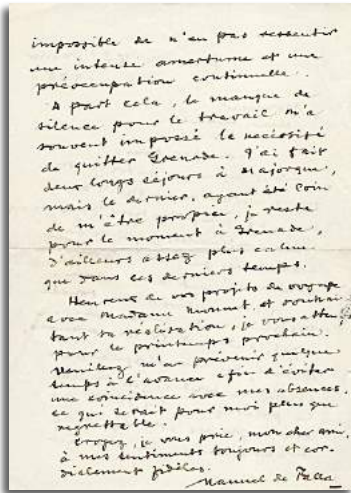 impossible de n'en pas ressentir
une intense amertume et une
préoccupation continuelle.
A part cela, le manque de
silence pour le travail m'a
souvent imposé la nécessité
de quitter Grenade. J'ai fait
deux longs séjours à Majorque,
mais le dernier, ayant été loin
de m'être propice, je reste
pour le moment à Grenade,
d'ailleurs assez plus calme
que dans ces derniers temps.
Heureux de vos projets de voyage
avec Madame et souhai-
tant sa réalisation, je vous attends
pour le printemps prochain.
Veuillez m'en prévenir quelque
temps à l'avance afin d'éviter
une coïncidence avec mes absences,
ce qui serait pour moi plus que
regrettable.
Croyez, je vous prie, mon cher ami,
à mes sentiments toujours et cor-
dialement fidèles.
Manuel de Falla